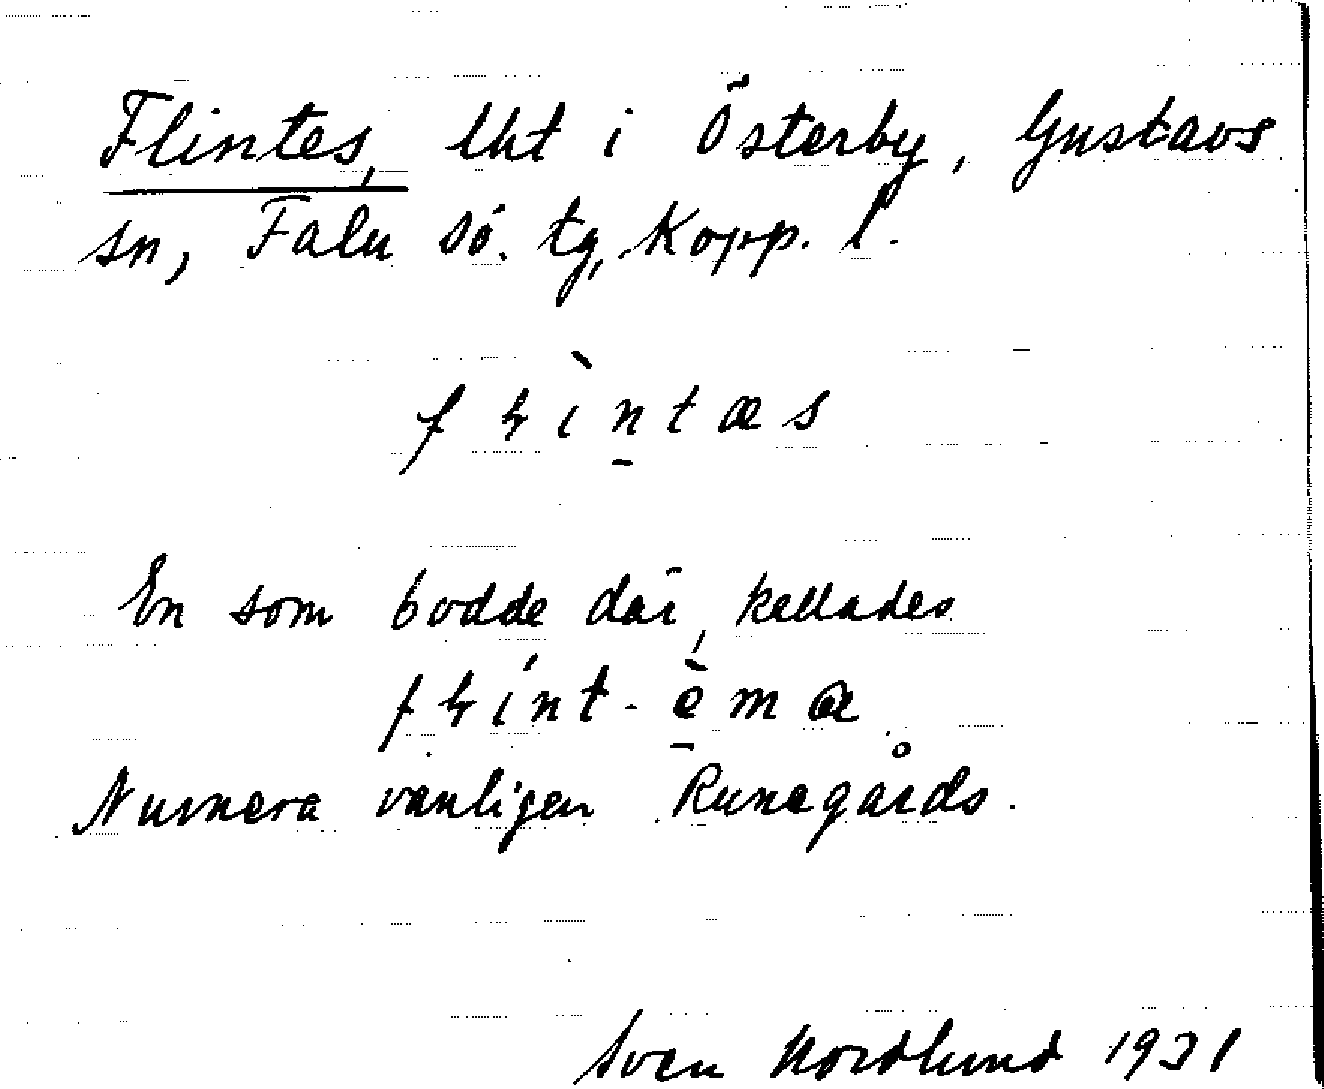 Flintes, lht i Österby, Gustavs
sn, Falu sö. tg, Kopp. l.
fꞎìn̠tæs
En som bodde där, kallades
fꞎínt-è̠ma
Numera vanligen Runegårds.
Sven Nordlund 1931